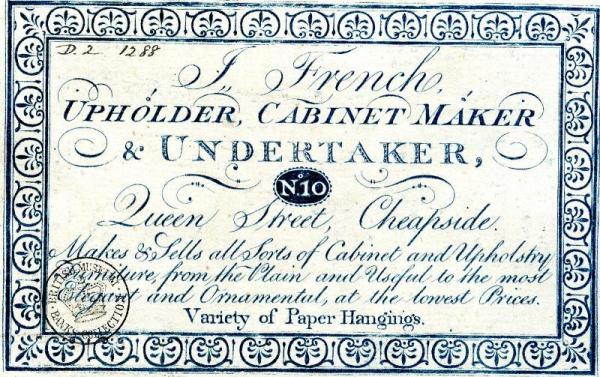 D.2 1288
J. French,
UPHOLDER, CABINET MAKER
& UNDERTAKER,
No. 10
Queen Street, Cheapside.
Makes & Sells all Sorts of Cabinet and Upholstry
from the Plain and Useful to the most
Elegant and Ornamental, at the lowest Prices.
Variety of Paper Hangings.
BRITISH MUSEUM
BANKS COLLECTION